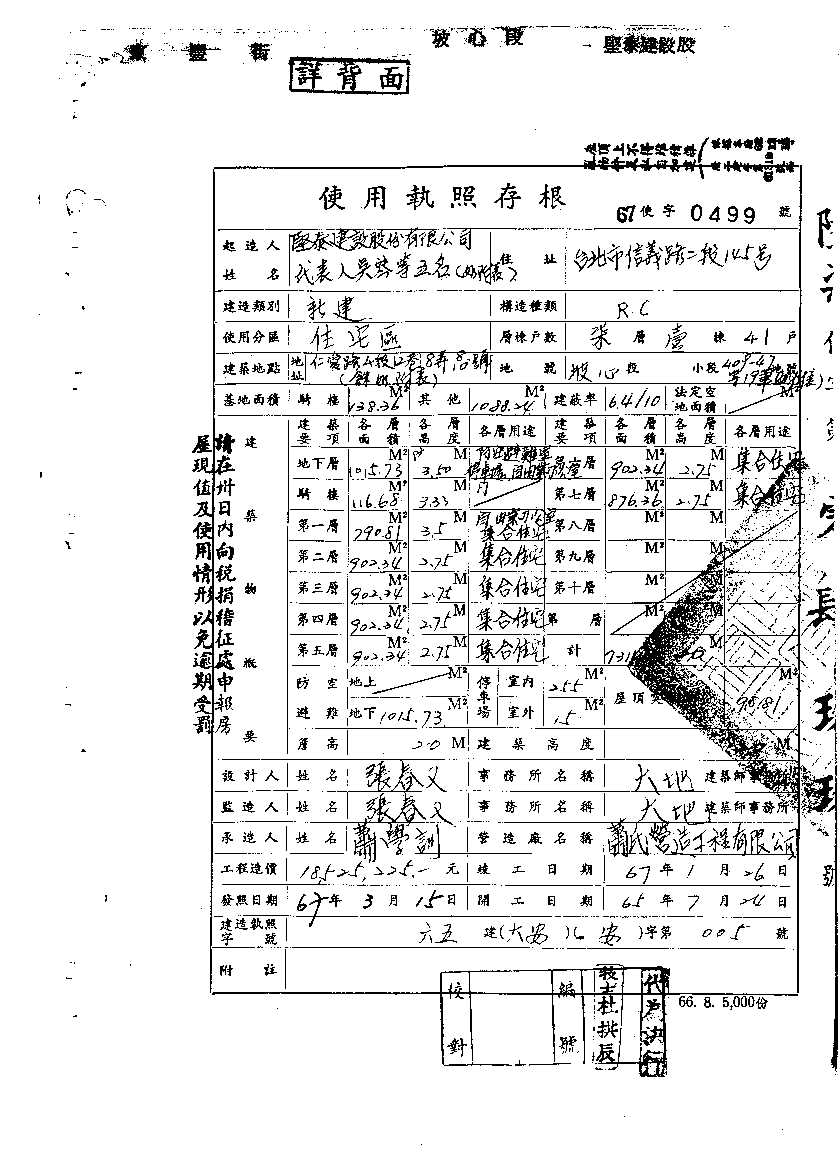 豐街
坡心段
堅泰建設股
詳背面
使用執照存根
67使字0499號
起造人姓名 堅泰建設股份有限公司
代表人吳 等五名(如附表)
住址 台北市信義路二段145号
建造類別 新建 構造種類 R.C
使用分區 住宅區 層棟戶數 柒層壹棟41戶
建築地點 地址 仁愛路4段 巷8弄 號
(餘如附表)
地號 坡心段 小段409-47
基地面積 騎樓 138.36 M² 其他 1088.24 M² 建蔽率 6.4/10 法定空地面積 M²
建築要項 各層面積 各層高度 各層用途 建築要項 各層面積 各層高度 各層用途
地下層 1015.73 M² 3.50 M 層 902.34 M² 2.75 M 集合住宅
騎樓 116.68 M² 3.33 M 第七層 876.36 M² 2.75 M 集合住宅
第一層 790.81 M² 3.5 M 集合住宅 第八層 M² M
第二層 902.34 M² 2.75 M 集合住宅 第九層 M² M
第三層 902.34 M² 2.75 M 集合住宅 第十層 M² M
第四層 902.34 M² 2.75 M 集合住宅 第 層 M² M
第五層 902.34 M² 2.75 M 集合住宅 計
防空避難 地上 M² 停車場 室內 255 M² 屋頂 98.81
地下 1015.73 M² 室外 15 M²
簷高 20 M 建築高度 M
建築物概要
設計人 姓名 張春文 事務所名稱 大地建築師事務所
監造人 姓名 張春文 事務所名稱 大地建築師事務所
承造人 姓名 蕭學訓 營造廠名稱 蕭氏營造工程有限公司
工程造價 18,525,225.-元 竣工日期 67年1月26日
發照日期 67年3月15日 開工日期 65年7月24日
建造執照字號 六五建(大安)(安)字第005號
附註
請在卅日內向稅捐稽征處申報房
屋現值及使用情形以免逾期受罰
校對
編號
技士杜拱辰
代為決行
66. 8. 5,000份
號